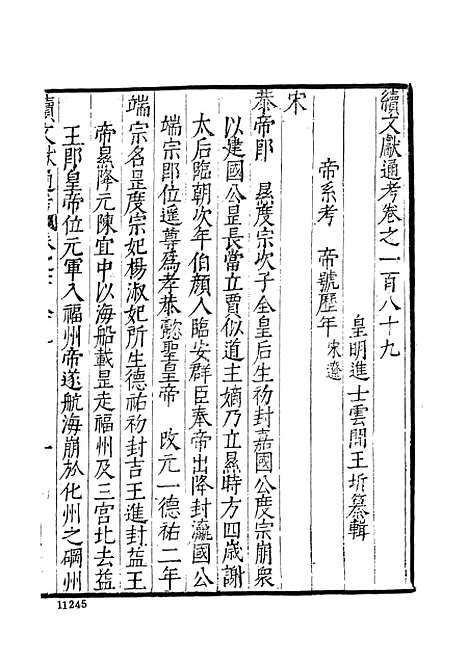 續文獻通考卷之一百八十九
皇明進士雲間王圻纂輯
帝系考　帝號歷年 宋遼
宋
恭帝即　㬎度宗次子全皇后生初封嘉國公度宗崩衆
以建國公昰長當立賈似道主嫡乃立㬎時方四歲謝
太后臨朝次年伯顏入臨安群臣奉帝出降封瀛國公
端宗即位遥尊爲孝恭懿聖皇帝　改元一德祐二年
端宗名昰度宗妃楊淑妃所生德祐初封吉王進封益王
帝㬎降元陳宜中以海船載昰走福州及三宮北去益
王即皇帝位元軍入福州帝遂航海崩於化州之碙州
續文獻通考
一
11245